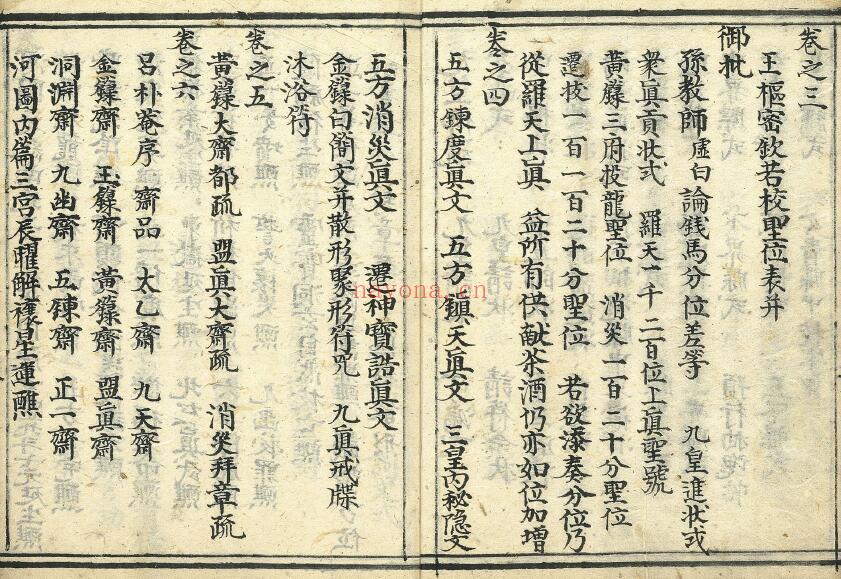 卷之三
王樞密欽若校聖位表并
御批
孫教師虛白論錢馬分位差等 九皇進狀或
衆眞貢狀式 羅天一千二百位上眞聖號
黄籙三府投龍聖位 消災一百二十分聖位
遷拔一百一百二十分聖位 若欲添奏分位乃
從羅天上眞 益所有供献茶酒仍亦如位加增
卷之四
五方鍊度眞文 五方鎮天眞文 三皇内秘隐文
五方消災眞文 遷神寶誥眞文
金籙白簡文并散形聚形符咒 九眞戒牒
沐浴符
卷之五
黄籙大齋都疏 盟眞大齋疏 消災拜章疏
卷之六
吕朴菴序 齋品 太乙齋 九天齋
金籙齋 玉籙齋 黄籙齋 盟眞齋
洞淵齋 九幽齋 五鍊齋 正一齋
河圖内篇三宫辰曜解禳星運醮
nayona.cn